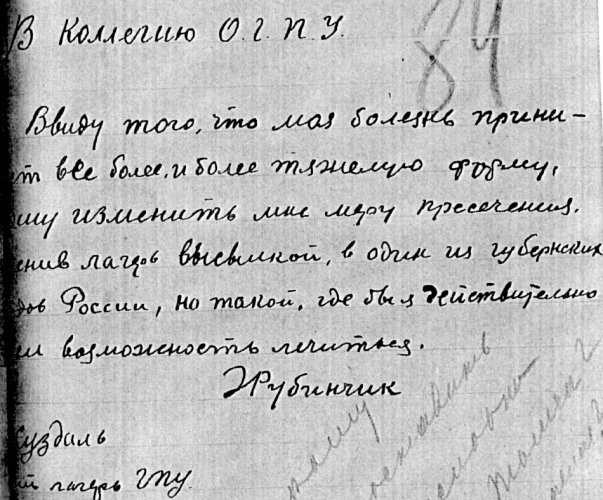 В Коллегию О.Г.П.У.
84
Ввиду того, что моя болезнь прини-
ет все более, и более тяжелую форму,
шу изменить мне меру пресечения.
енив лагерь высылкой, в один из губернских
дов России, но такой, где бы я действительно
ел возможность лечиться.
ЭРубинчик
Суздаль
ий лагерь ГПУ.